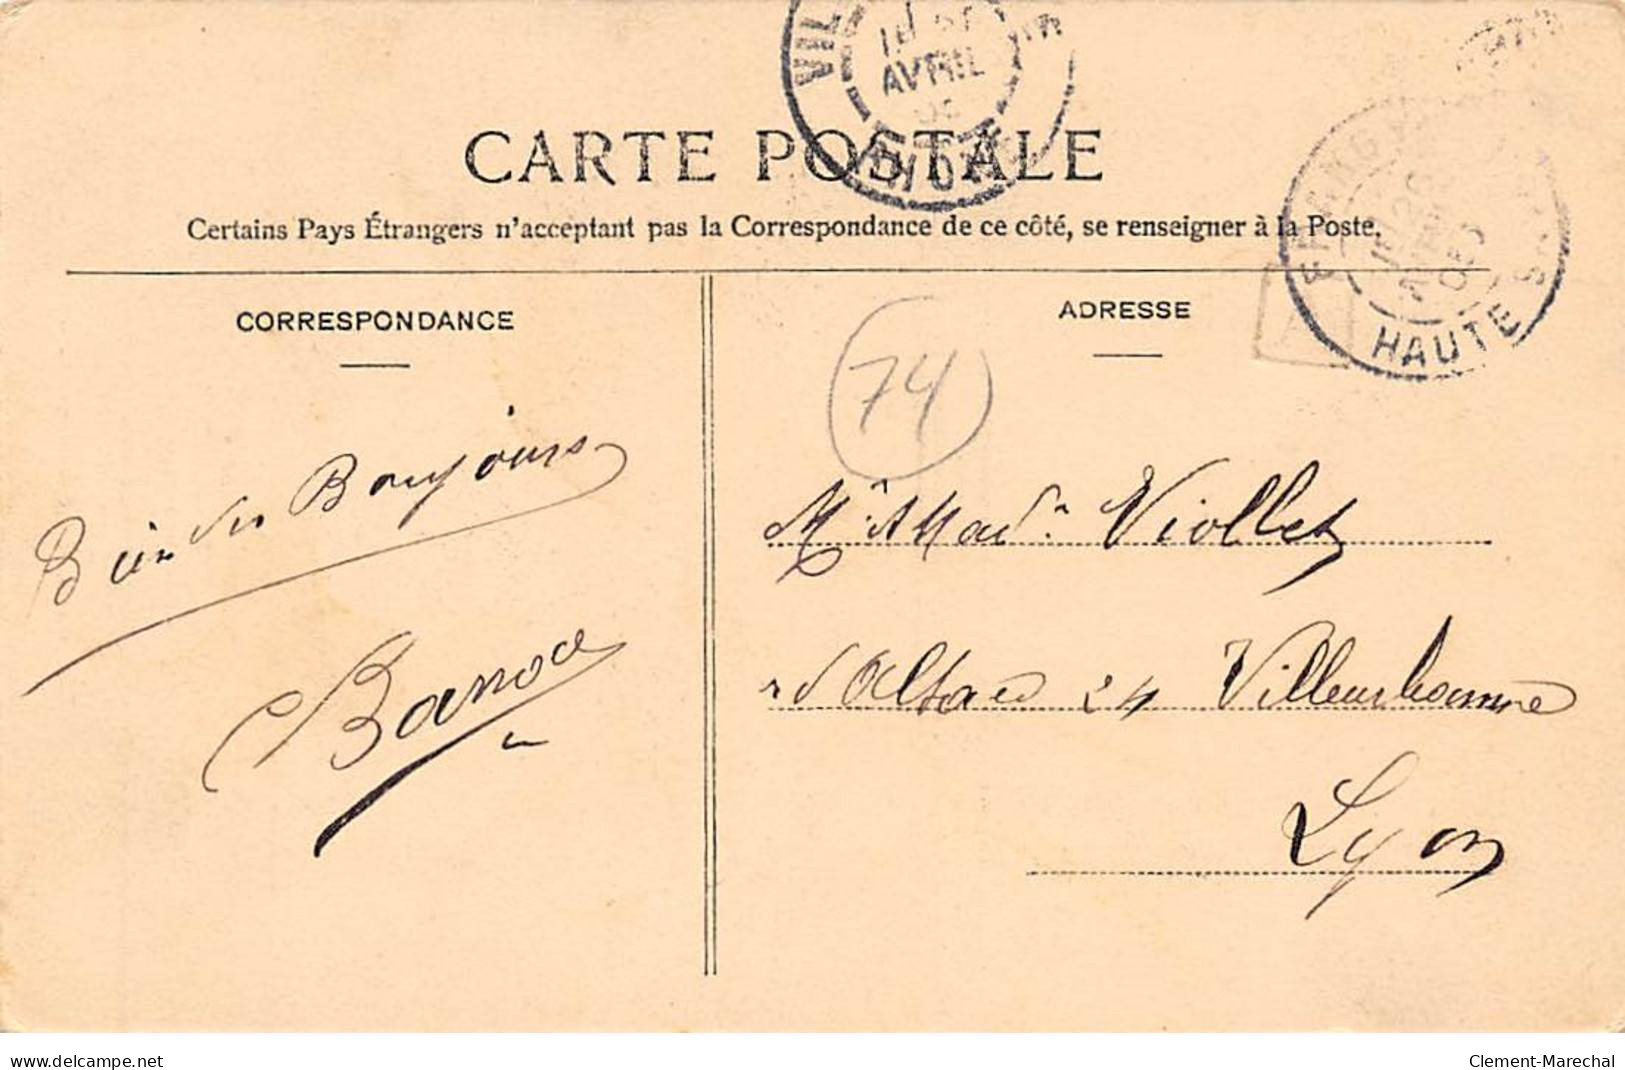 VIL
AVRIL
RHONE
CARTE POSTALE
Certains Pays Étrangers n'acceptant pas la Correspondance de ce côté, se renseigner à la Poste.
HAUTE
CORRESPONDANCE
ADRESSE
74
Bien des Bonjours
Mr & Mad. Viollet
r d'Alsace 24 Villeurbanne
Lyon
delcampe.net
Clement-Marechal